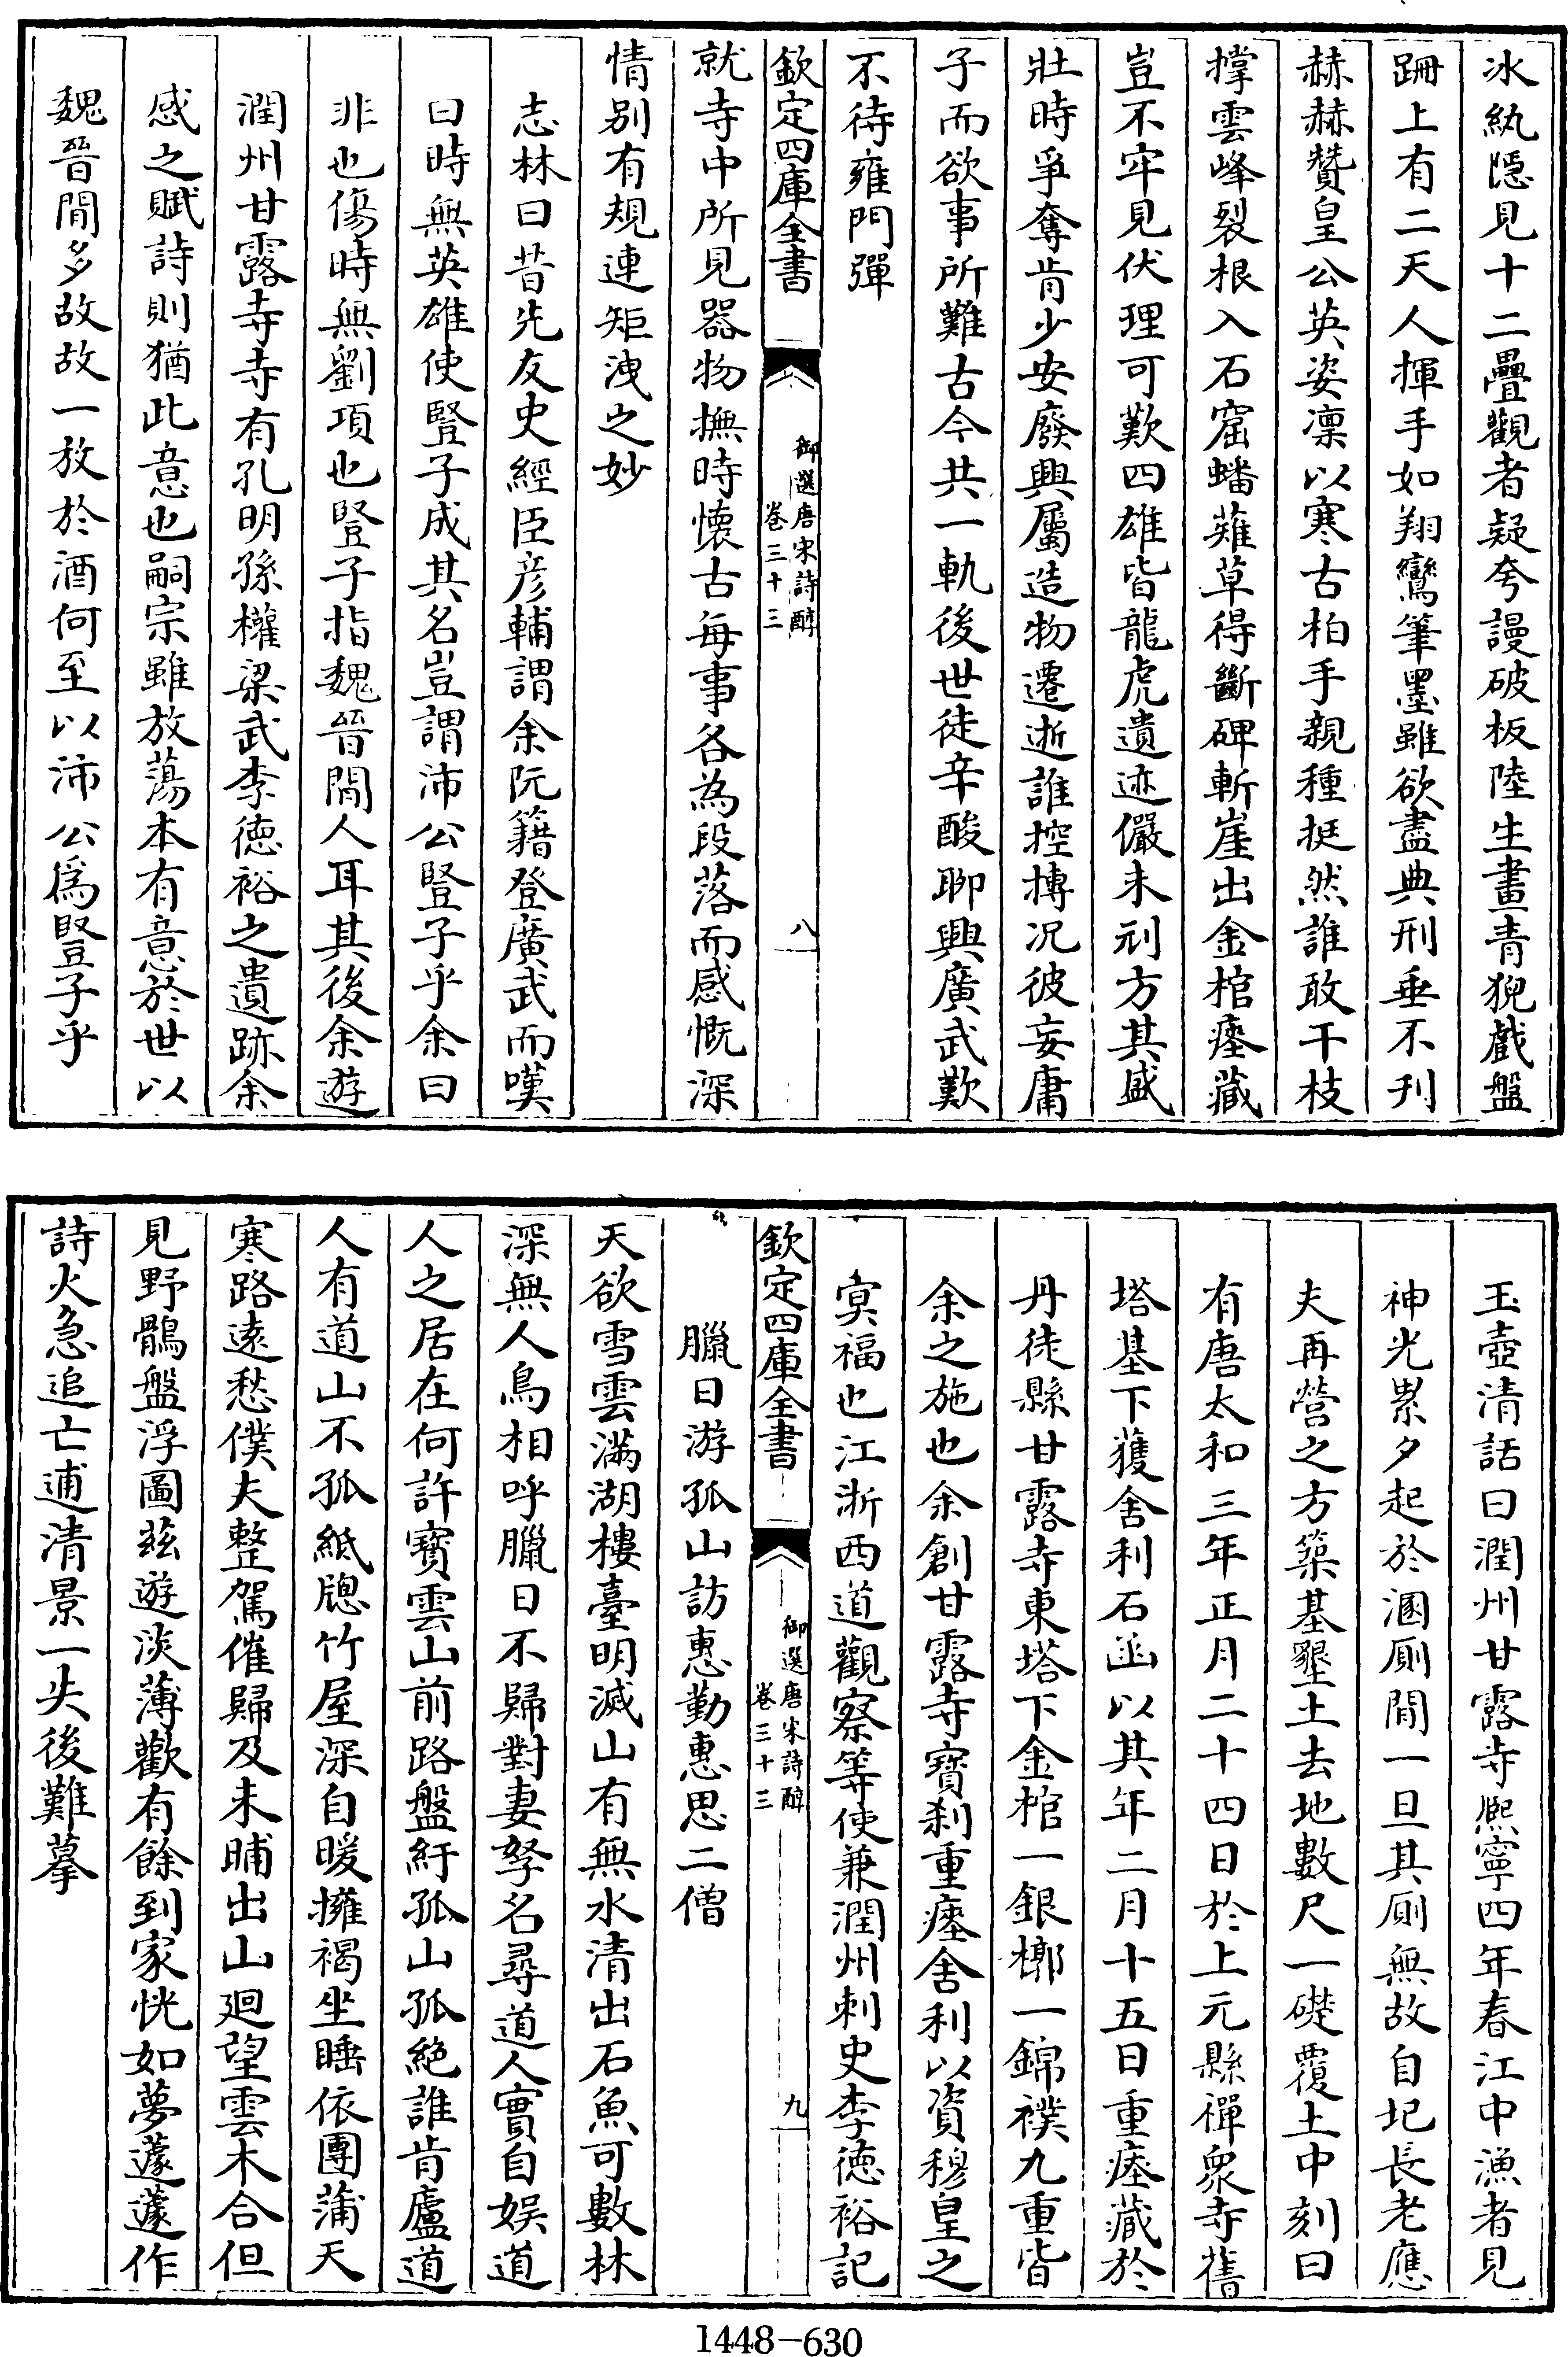 冰紈隱見十二疊觀者疑夸謾破板陸生畫青猊戲盤
跚上有二天人揮手如翔鸞筆墨雖欲盡典刑垂不刊
赫赫贊皇公英姿凜以寒古柏手親種挺然誰敢干枝
撑雲峰裂根入石窟蟠薙草得斷碑斬崖出金棺瘞藏
豈不牢見伏理可歎四雄皆龍虎遺迹儼未刓方其盛
壯時爭奪肯少安廢興屬造物遷逝誰控摶况彼妄庸
子而欲事所難古今共一軌後世徒辛酸聊興廣武歎
不待雍門彈
欽定四庫全書
御選唐宋詩醇
卷三十三
八
就寺中所見器物撫時懷古每事各為段落而感慨深
情別有規連矩洩之妙
志林曰昔先友史經臣彥輔謂余阮籍登廣武而嘆
曰時無英雄使豎子成其名豈謂沛公豎子乎余曰
非也傷時無劉項也豎子指魏晉間人耳其後余遊
潤州甘露寺寺有孔明孫權梁武李德裕之遺跡余
感之賦詩則猶此意也嗣宗雖放蕩本有意於世以
魏晉間多故故一放於酒何至以沛公爲豎子乎
玉壺清話曰潤州甘露寺熈寧四年春江中漁者見
神光累夕起於溷厠間一旦其厠無故自圮長老應
夫再營之方築基墾土去地數尺一礎覆土中刻曰
有唐太和三年正月二十四日於上元縣禪衆寺舊
塔基下獲舍利石函以其年二月十五日重瘞藏於
丹徒縣甘露寺東塔下金棺一銀槨一錦襆九重皆
余之施也余創甘露寺寶刹重瘞舍利以資穆皇之
冥福也江浙西道觀察等使兼潤州刺史李德裕記
欽定四庫全書
御選唐宋詩醇
卷三十三
九
臘日游孤山訪惠勤惠思二僧
天欲雪雲滿湖樓臺明滅山有無水清出石魚可數林
深無人鳥相呼臘日不歸對妻孥名尋道人實自娱道
人之居在何許寶雲山前路盤紆孤山孤絕誰肯廬道
人有道山不孤紙牕竹屋深自暖擁褐坐睡依團蒲天
寒路遠愁僕夫整駕催歸及未晡出山迴望雲木合但
見野鶻盤浮圖茲遊淡薄歡有餘到家恍如夢蘧蘧作
詩火急追亡逋清景一失後難摹
1448-630